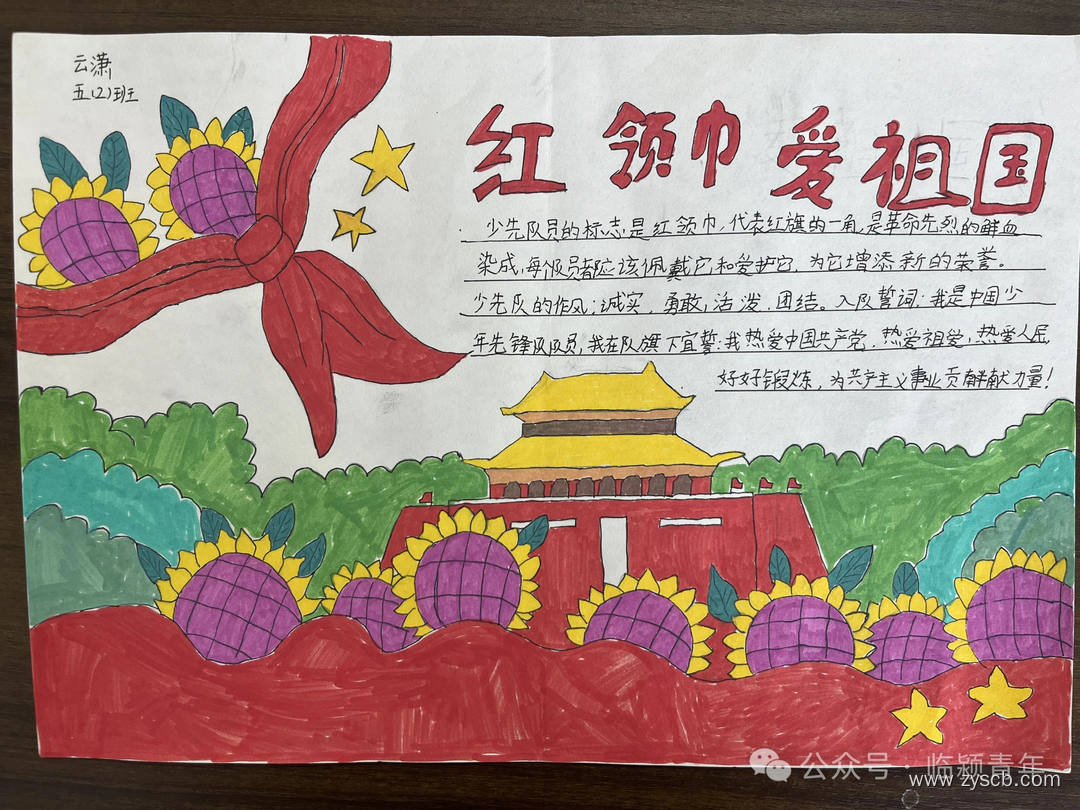 云潇
五(2)班
红领巾爱祖国
少先队员的标志是红领巾,代表红旗的一角,是革命先烈的鲜血
染成,每个队员都应该佩戴它和爱护它,为它增添新的荣誉。
少先队的作风:诚实,勇敢,活泼,团结。入队誓词:我是中国少
年先锋队队员,我在队旗下宣誓:我热爱中国共产党,热爱祖爱,热爱人民,
好好锻炼,为共产主义事业贡献力量!
公众号·临颍青年
www.zyscb.com